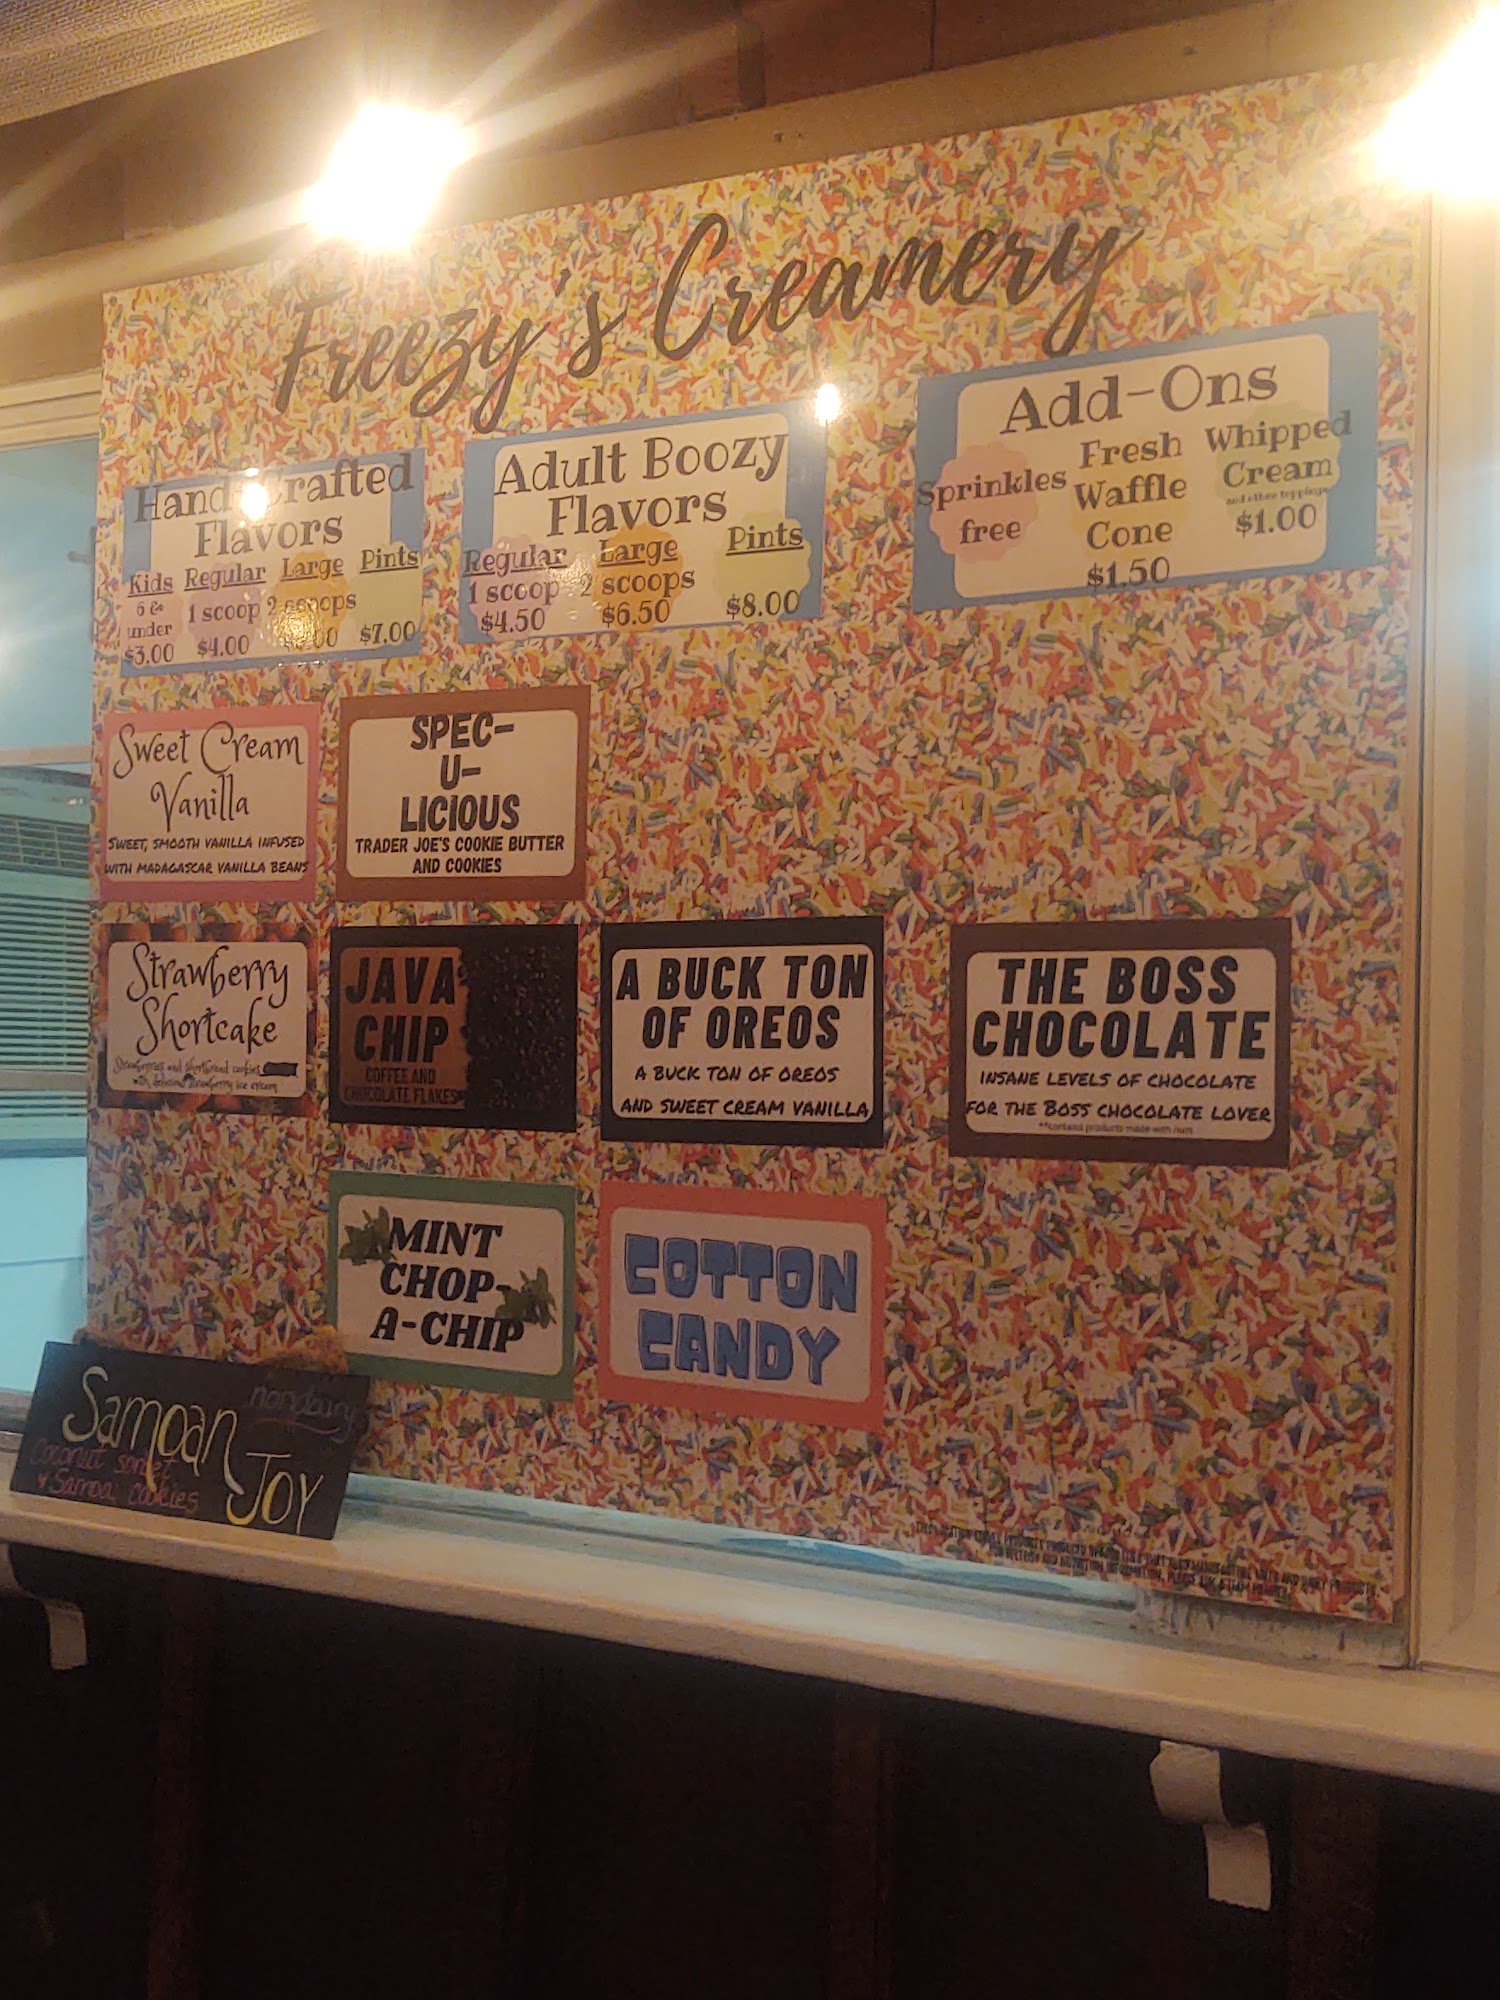 Freezy's Creamery
Hand-Crafted
Flavors
Kids Regular Large Pints
6 &
under
1 scoop 2 scoops
$3.00 $4.00 $7.00
Adult Boozy
Flavors
Regular Large Pints
1 scoop 2 scoops
$4.50 $6.50 $8.00
Add-Ons
Sprinkles
free
Fresh
Waffle
Cone
$1.50
Whipped
Cream
and other toppings
$1.00
Sweet Cream
Vanilla
SWEET, SMOOTH VANILLA INFUSED
WITH MADAGASCAR VANILLA BEANS
SPEC-
U-
LICIOUS
TRADER JOE'S COOKIE BUTTER
AND COOKIES
Strawberry
Shortcake
Strawberries and shortbread cookies
with delicious strawberry ice cream
JAVA
CHIP
COFFEE AND
CHOCOLATE FLAKES
A BUCK TON
OF OREOS
A BUCK TON OF OREOS
AND SWEET CREAM VANILLA
THE BOSS
CHOCOLATE
INSANE LEVELS OF CHOCOLATE
FOR THE BOSS CHOCOLATE LOVER
**contains products made with nuts
MINT
CHOP-
A-CHIP
COTTON
CANDY
Samoan
Joy
nondairy
Coconut sorbet
& Samoa cookies